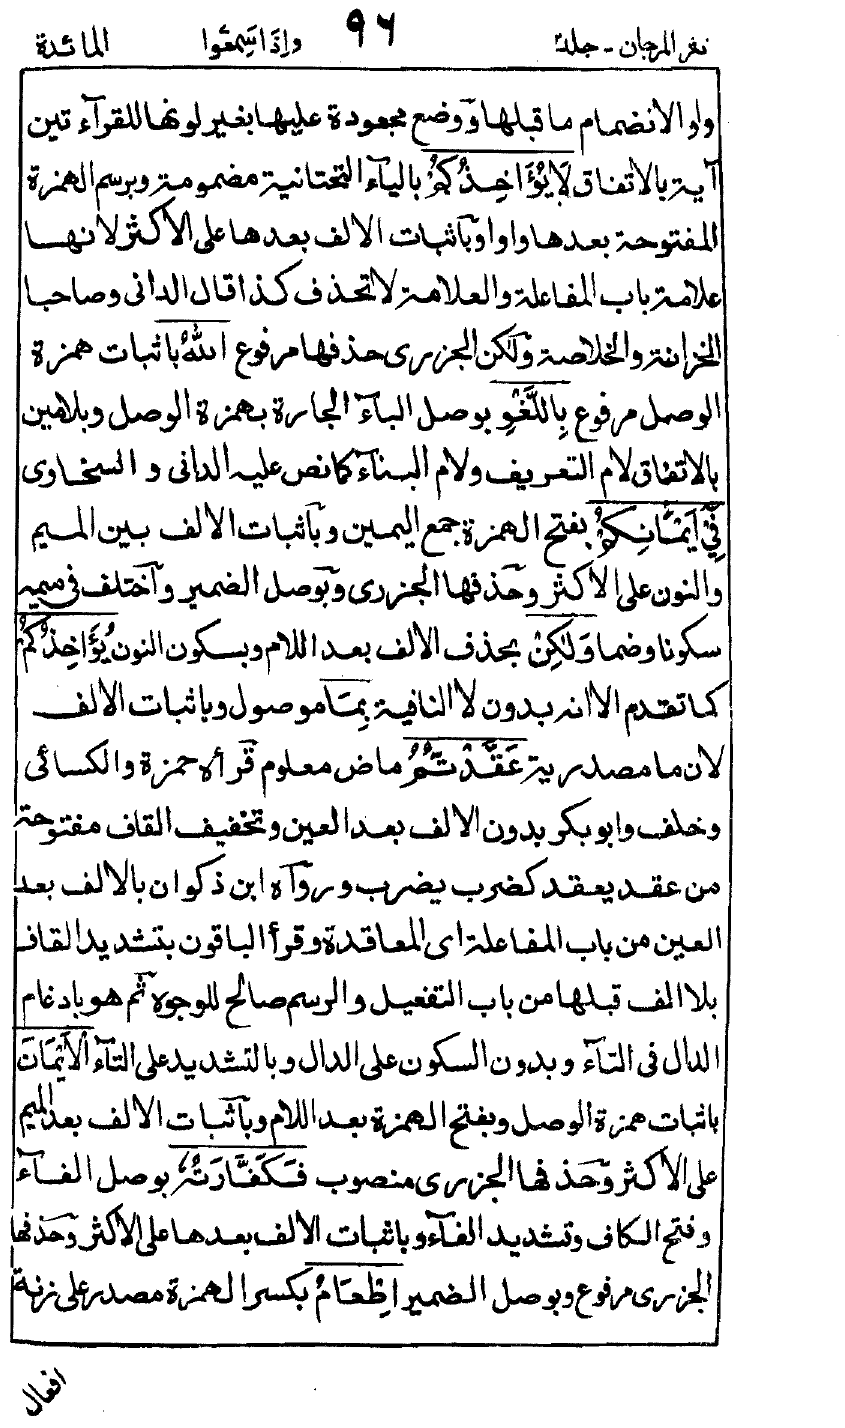 نثر المرجان - جلد ٩٦ واذا سمعوا المائدة
واو الانضمام ما قبلها ووضع مجعودة عليها بغير لونها للقرآء تين
آية بالاتفاق لَا يُؤَاخِذُكُمُ بالياء التحتانية مضمومة وبرسم الهمزة
المفتوحة بعدها واوا وباثبات الالف بعدها على الاكثر لانهــا
علامة باب المفاعلة والعلامة لا تحذف كذا قال الدانى وصاحبا
الخزانة والخلاصة ولكن الجزرى حذفها مرفوع اللهُ باثبات همزة
الوصل مرفوع بِاللَّغْوِ بوصل البآء الجارة بهمزة الوصل وبلامين
بالاتفاق لام التعريف ولام البنآء كما نص عليه الدانى و السخاوى
فِىٓ اَيْمَانِكُمْ بفتح الهمزة جمع اليمين وباثبات الالف بين المـيم
والنون على الاكثر وحذفها الجزرى وبوصل الضمير واختلف فى ميمه
سكونا وضما وَلٰكِنْ بحذف الالف بعد اللام وبسكون النون يُؤَاخِذُكُمْ
كما تقدم الا انه بدون لا النافية بِمَا موصول وباثبات الالف
لان ما مصدرية عَقَّدْتُّمُ ماض معلوم قرأه حمزة والكسائى
وخلف وابو بكر بدون الالف بعد العين وتخفيف القاف مفتوحة
من عقد يعقد كضرب يضرب ورواه ابن ذكوان بالالف بعد
العين من باب المفاعلة اى المعاقدة وقرأ الباقون بتشديد القاف
بلا الف قبلها من باب التفعيل والرسم صالح للوجوه ثم هو بادغام
الدال فى التآء وبدون السكون على الدال وبالتشديد على التآء الْاَيْمَانَ
باثبات همزة الوصل وبفتح الهمزة بعد اللام وباثبات الالف بعد الميم
على الاكثر وحذفها الجزرى منصوب فَكَفَّارَتُهٗ بوصل الفــآء
وفتح الكاف وتشديد الفآء وباثبات الالف بعدها على الاكثر وحذفها
الجزرى مرفوع وبوصل الضمير اِطْعَامُ بكسر الهمزة مصدر على زنة
افعال